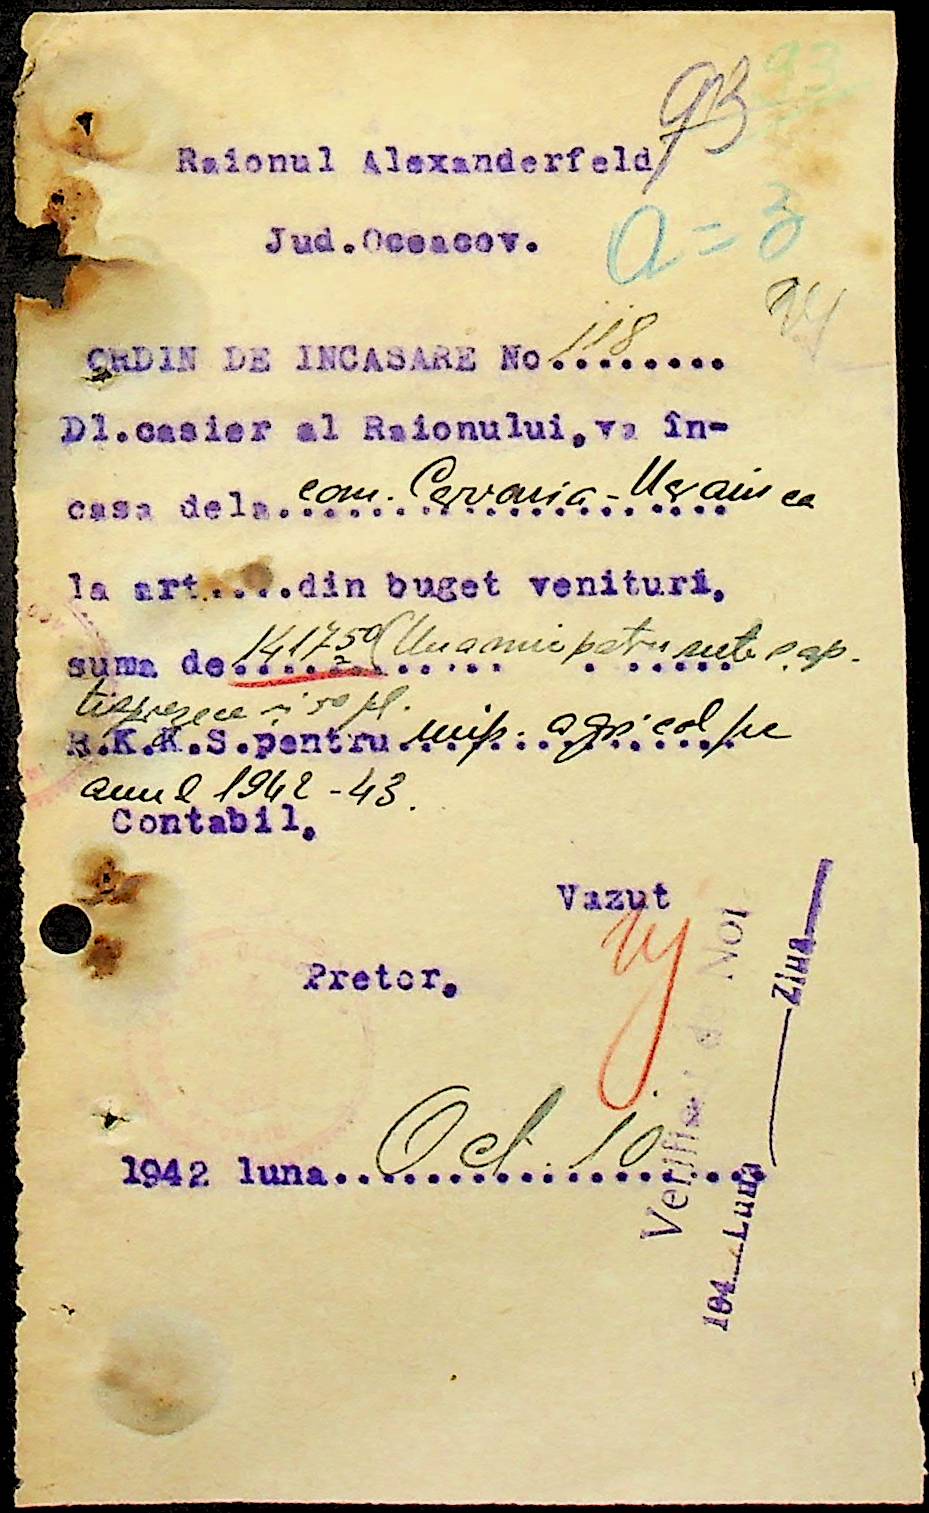 93
93
Raionul Alexanderfeld
Jud.Oceacov.
a = 3
ORDIN DE INCASARE No 118........
Dl.casier al Raionului, va în-
casa dela. com. Cervonia-Ucrainca
la art.....din buget venituri,
suma de 1417 50 (Una mie patru sute șap-
tisprezece și 50 pf.
R.K.K.S.pentru imp. agricol pe
anul 1942-43.
Contabil,
Vazut
Pretor,
1942 luna Oct. 10
Verificat de Noi
194 Luna Ziua